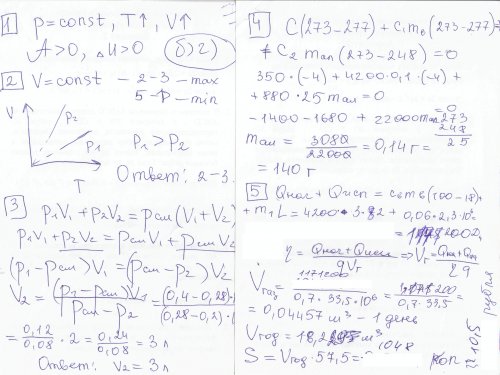 1 p=const, T↑, V↑
A>0, △U>0 б) 2)
2 V=const - 2-3 - max
5-1 - min
V
p₂
p₁
p₁>p₂
T
Ответ: 2-3.
3 p₁V₁+p₂V₂=pсм(V₁+V₂)
p₁V₁+p₂V₂=pсмV₁+pсмV₂
(p₁-pсм)V₁=(pсм-p₂)V₂
V₂=(p₁-pсм)V₁/pсм-p₂ = (0,4-0,28)/(0,28-0,2)
=0,12/0,08 · 2=0,24/0,08=3 л
Ответ: V₂=3 л
4 C(273-277)+c₁mв(273-277)+
+C₂ mал(273-248)=0
350·(-4)+4200·0,1·(-4)+
+880·25mал=0
-1400-1680+22000mал=0
273
248
25
mал=3080/22000=0,14 г=
=140 г
5 Qнаг+Qисп=cвmв(100-18)+
+m₁L=4200·3·82+0,06·2,3·10⁶
η=Qнаг+Qисп/qVг ⇒Vг=Qнаг+Qисп/ηq
Vгаз=1171200/0,7·33,5·10⁶=
0,7·33,5
=0,04457 м³ - 1 день
Vгод=м³
S=Vгод·57,5=
1048
рубля
10,5
коп